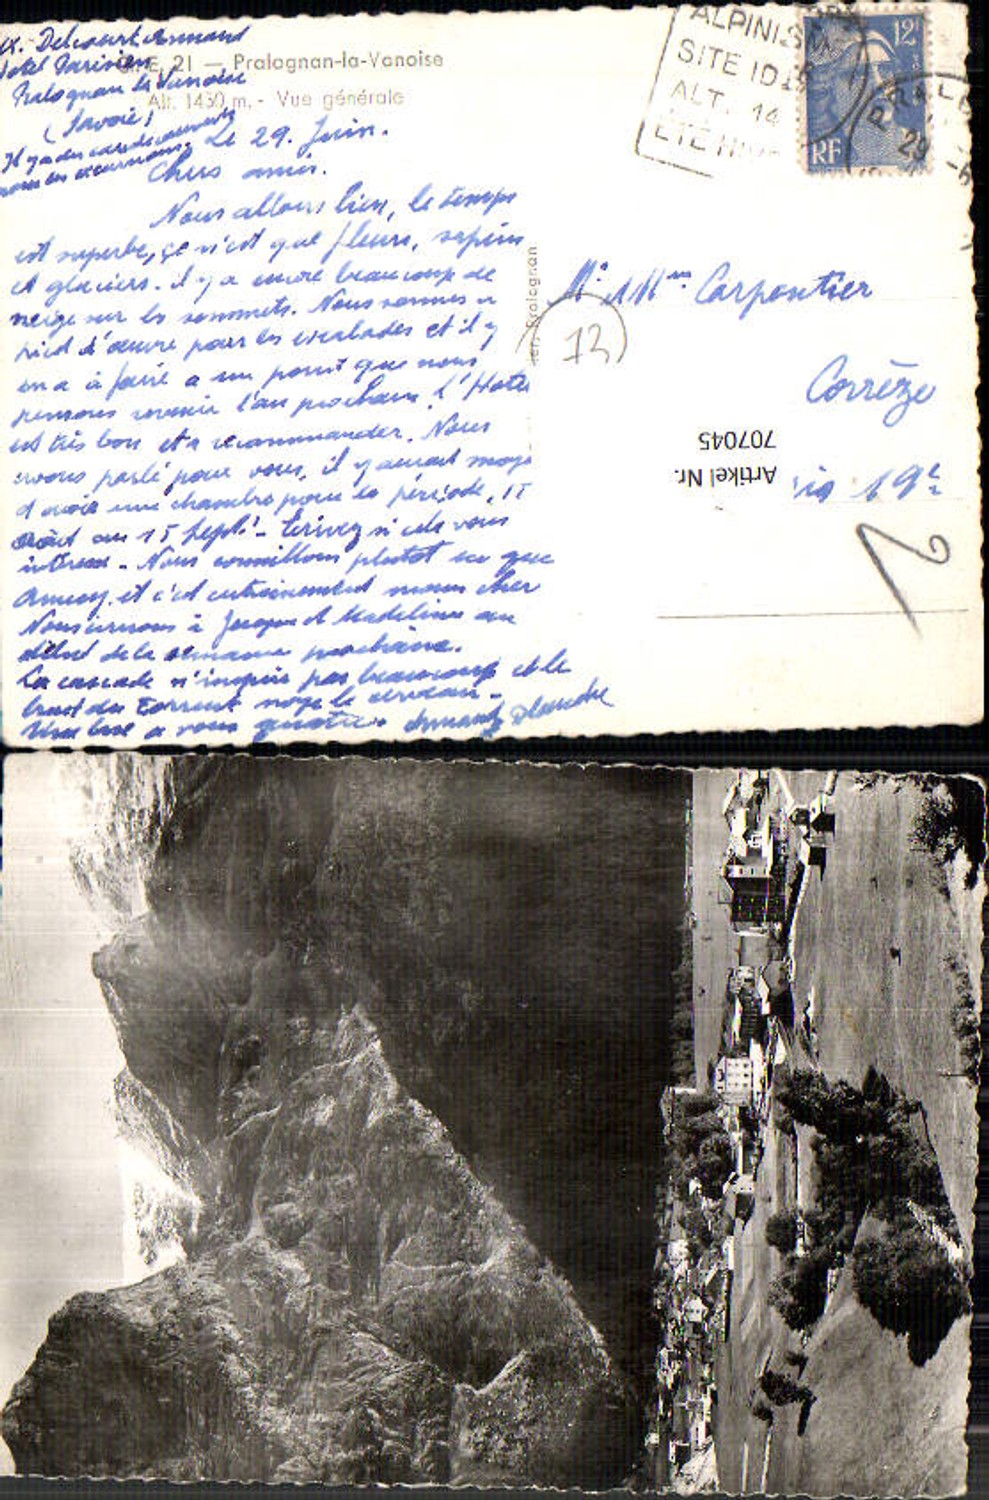 Mr. Delcourt Armand
Hotel Parisien
Pralognan la Vanoise
(Savoie)
Il y a des cars découverts
pour les excursions.
21 — Pralognan-la-Vanoise
Alt. 1430 m. - Vue générale
Le 29. Juin.
Chers amis.
Nous allons bien, le temps
est superbe, ce n'est que fleurs, sapins
et glaciers. il y a encore beaucoup de
neige sur les sommets. Nous sommes à
pied d'œuvre pour les escalades et il y
en a à faire a un point que nous
pensons revenir l'an prochain. L'Hotel
est très bon et à recommander. Nous
avons parlé pour vous, il y aurait moyen
d'avoir une chambre pour la période, 15
août au 15 Sept. - Ecrivez si cela vous
intéresse - Nous conseillons plutôt ici que
Annecy, et c'est certainement moins cher
Nous irons à Jacques et Madeleine au
début de la semaine prochaine.
La cascade n'inspire pas beaucoup et le
bruit du Torrent noye le cerveau -
Une bise a vous quatre. Armand Blanche
ALPINISME
SITE
ALT. 14
ETE HIV
12F
RF
PRALO
29 -6
Pralognan
Mr et Mme Carpentier
13
Corrèze
Artikel Nr.
707045
is 19e
2